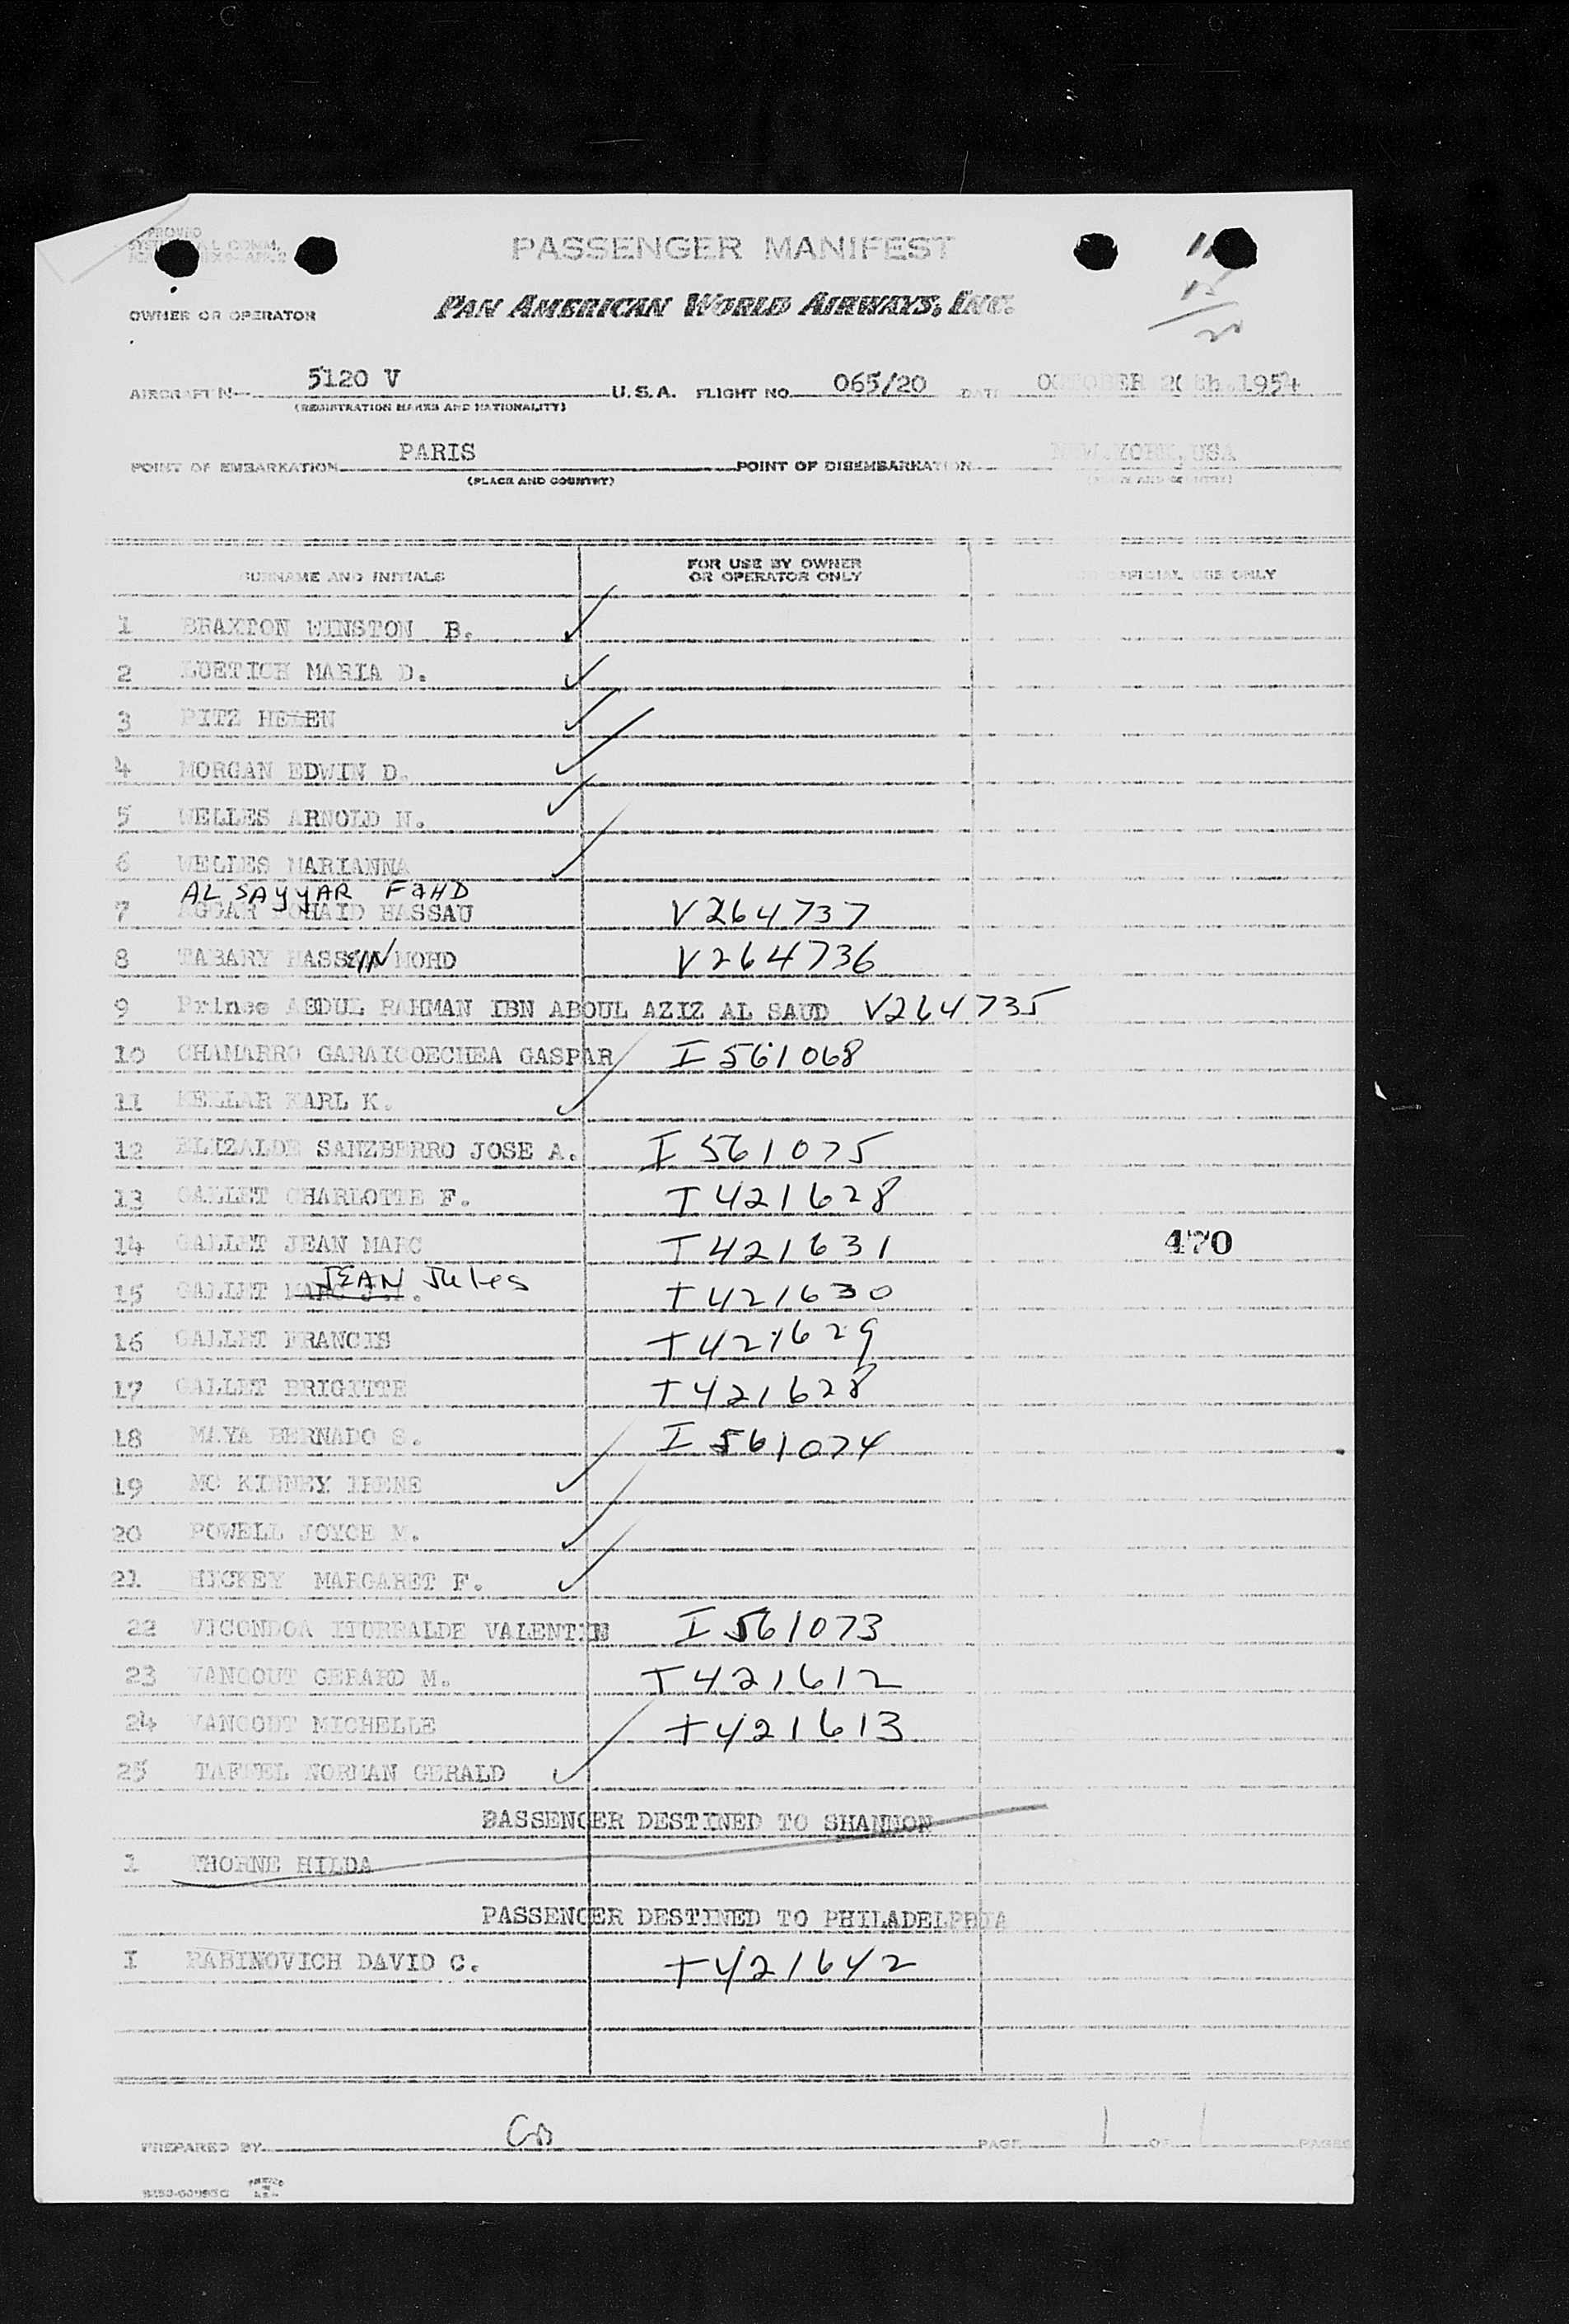 PASSENGER MANIFEST
OWNER OR OPERATOR PAN AMERICAN WORLD AIRWAYS, INC.
AIRCRAFT N— 5120 V U.S.A. FLIGHT NO. 065/20 DATE OCTOBER 20th, 1954
(REGISTRATION MARKS AND NATIONALITY)
POINT OF EMBARKATION PARIS POINT OF DISEMBARKATION NEW.YORK,USA
(PLACE AND COUNTRY) (PLACE AND COUNTRY)
SURNAME AND INITIALS FOR USE BY OWNER OR OPERATOR ONLY FOR OFFICIAL USE ONLY
1 BRAXTON WINSTON B.
2 LUETICH MARIA D.
3 PITZ HELEN
4 MORGAN EDWIN D.
5 WELLES ARNOLD N.
6 WELLES MARIANNA
AL SAYYAR FAHD
7 HASSAU V264737
8 TABARY HASSEIN MOHD V264736
9 Prince ABDUL RAHMAN IBN ABOUL AZIZ AL SAUD V264735
10 CHAMARRO GARAICOECHEA GASPAR I 561068
11 KELLAR KARL K.
12 ELIZALDE SANZBERRO JOSE A. I 561075
13 GALLET CHARLOTTE F. T421628
14 GALLET JEAN MARC T421631 470
JEAN Jules
15 GALLET T421630
16 GALLET FRANCIS T421629
17 GALLET BRIGITTE T421628
18 MAYA BERNADO S. I 561074
19 MC KINNEY IRENE
20 POWELL JOYCE M.
21 HICKEY MARGARET F.
22 VICONDOA ITURRALDE VALENTIN I 561073
23 VANCOUT GERARD M. T421612
24 VANCOUT MICHELLE T421613
25 NORMAN GERALD
PASSENGER DESTINED TO SHANNON
1 THORNE HILDA
PASSENGER DESTINED TO PHILADELPHIA
I RABINOVICH DAVID C. T421642
PREPARED BY PAGE 1 OF 1 PAGES